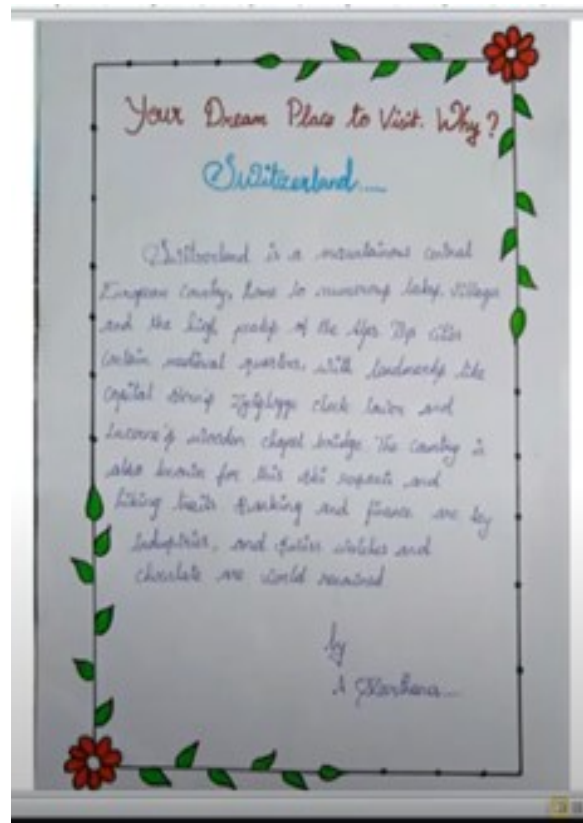 Your Dream Place to Visit. Why?
Switizerland.....
Switzerland is a mountainous central
European country, home to numerous lakes, villages
and the high peaks of the Alps. Its cities
contain medieval quarters, with landmarks like
capital Bern's Zytglogge clock tower and
Lucerne's wooden chapel bridge. The country is
also known for this ski resorts and
hiking trails Banking and finance are key
industries, and swiss watches and
chocolate are world renowned
by